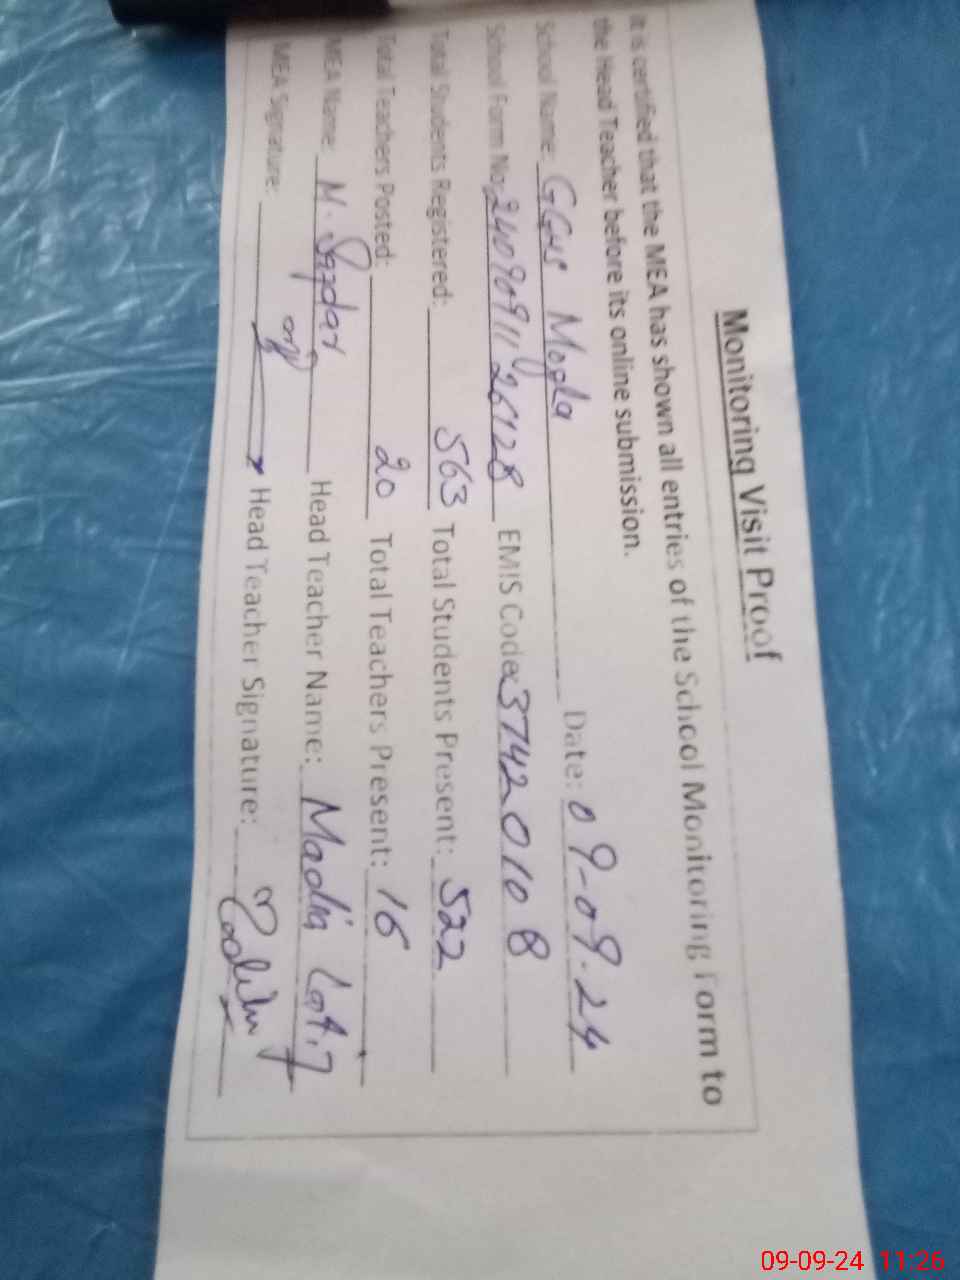 Monitoring Visit Proof
It is certified that the MEA has shown all entries of the School Monitoring Form to
the Head Teacher before its online submission.
School Name: GGHS Mogla Date: 09-09-24
School Form No: 2409091126128 EMIS Code: 37420108
Total Students Registered: 563 Total Students Present: 522
Total Teachers Posted: 20 Total Teachers Present: 16
MEA Name: M. Safdar Head Teacher Name: Madia Latif
MEA Signature: Head Teacher Signature:
09-09-24 11:26